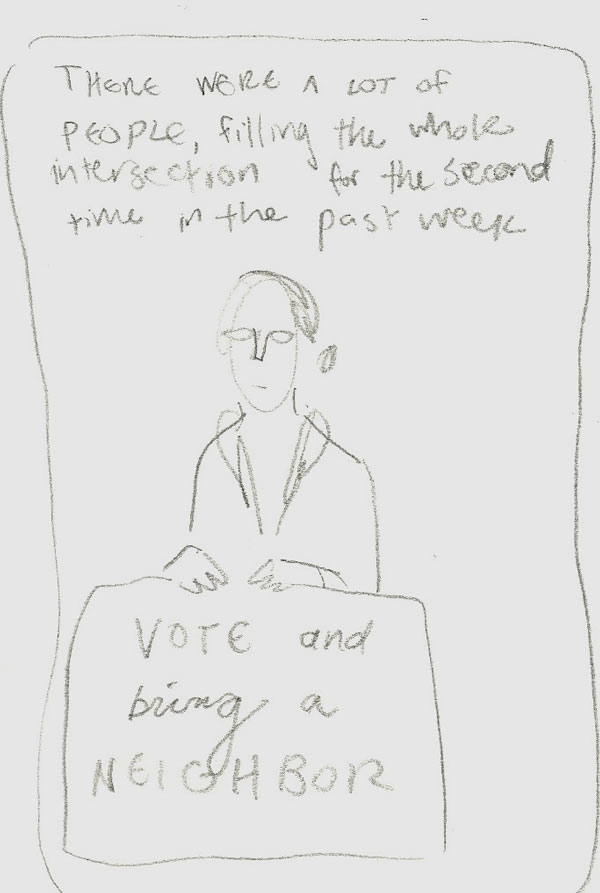 THERE WERE A LOT OF
PEOPLE, filling the whole
intersection for the second
time in the past week
VOTE and
bring a
NEIGHBOR